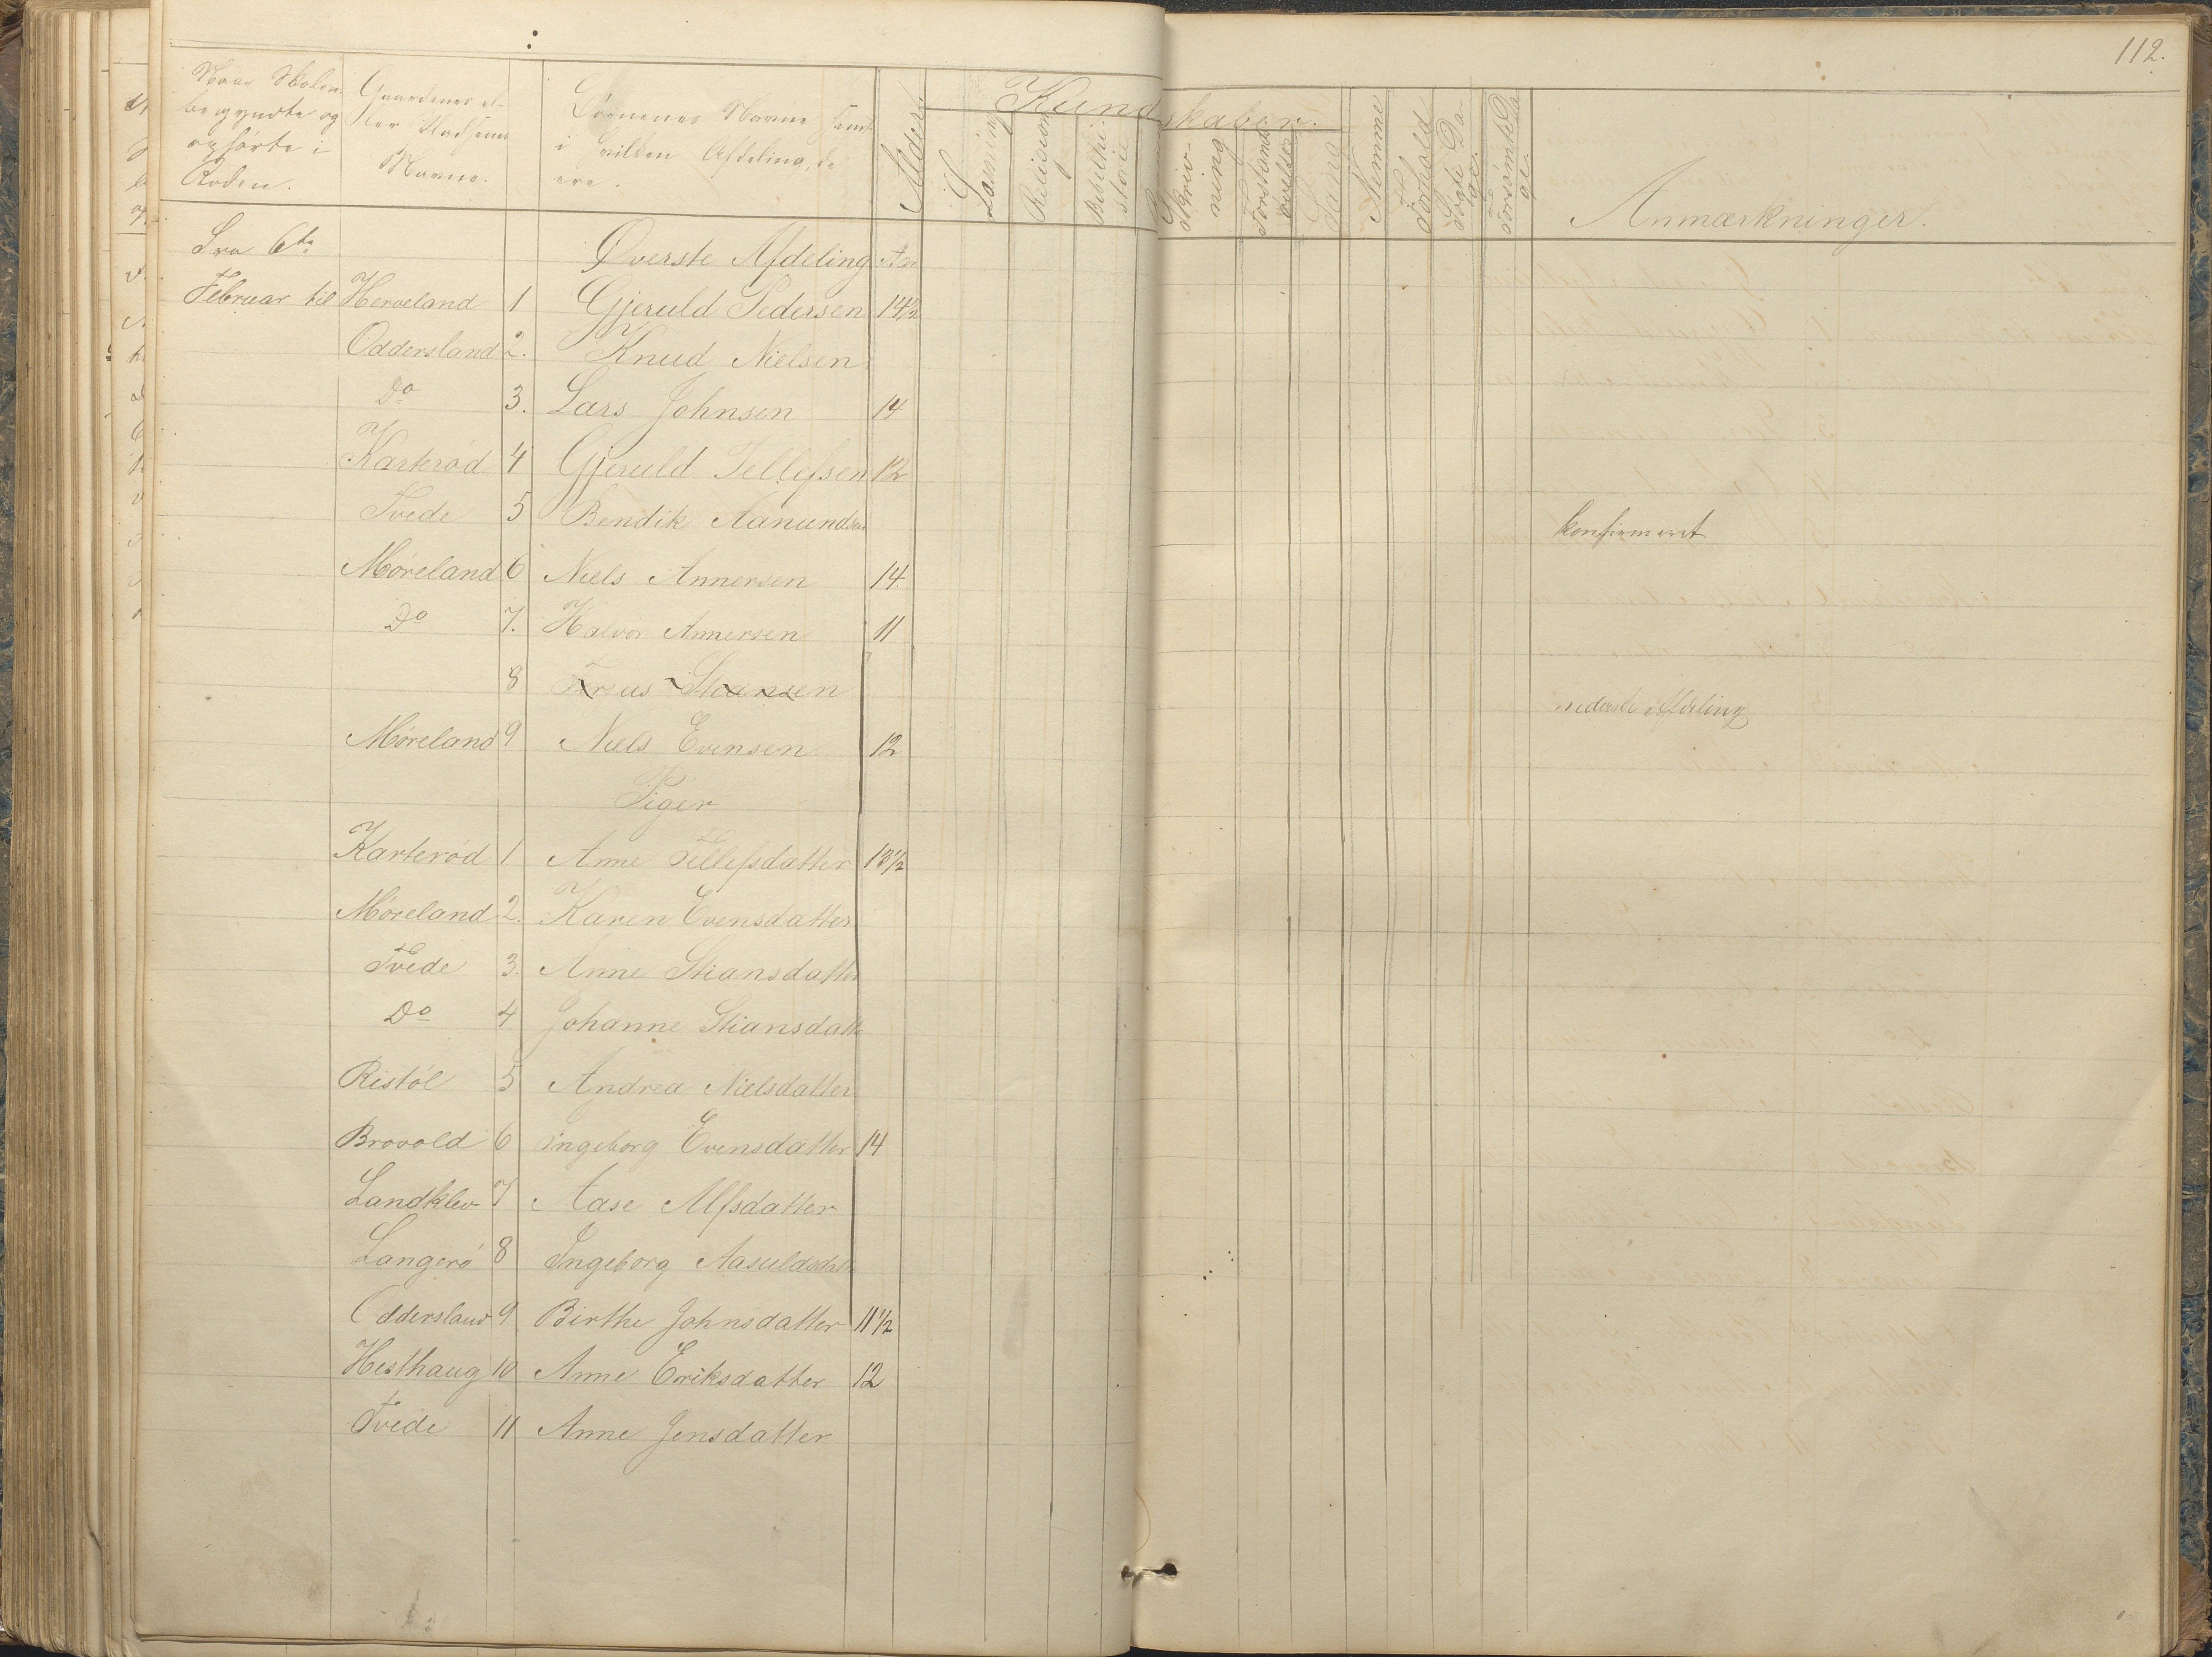 112.
Naar Skolen begyndte og ophørte i Roden.
Gaardenes eller Pladsenes Navne.
Børnenes Navne samt i hvilken Afdeling de ere.
Alder.
Kundskaber.
Læsning
Religion
Bibelhistorie
Skrivning
Forstandsøvelse
Sang
Nemme
Forhold
Søgte Dage.
Forsømte Dage.
Anmærkninger.
Fra 6te Øverste Afdeling Aar
Februar til Herveland 1 Gjeruld Pedersen 14½
Oddersland 2. Knud Nielsen
Do 3. Lars Johnsen 14
Karterød 4 Gjeruld Tellefsen 12
Tvede 5 Bendik Aanundsen konfirmeret
Møreland 6 Niels Annersen 14.
Do 7. Halvor Annersen 11
8 Stiansen nederste Afdeling
Møreland 9 Niels Evensen 12
Piger
Karterød 1 Anne Tellefsdatter 13½
Møreland 2. Karen Evensdatter
Tvede 3. Anne Stiansdatter
Do 4 Johanne Stiansdatt
Ristøl 5 Andrea Nielsdatter
Brovold 6 Ingeborg Evensdatter 14
Landklev 7 Aase Alfsdatter
Langerø 8 Ingeborg Aasuldsdatt
Oddersland 9 Birthe Johnsdatter 11½
Hesthaug 10 Anne Eriksdatter 12
Tvede 11 Anne Jensdatter